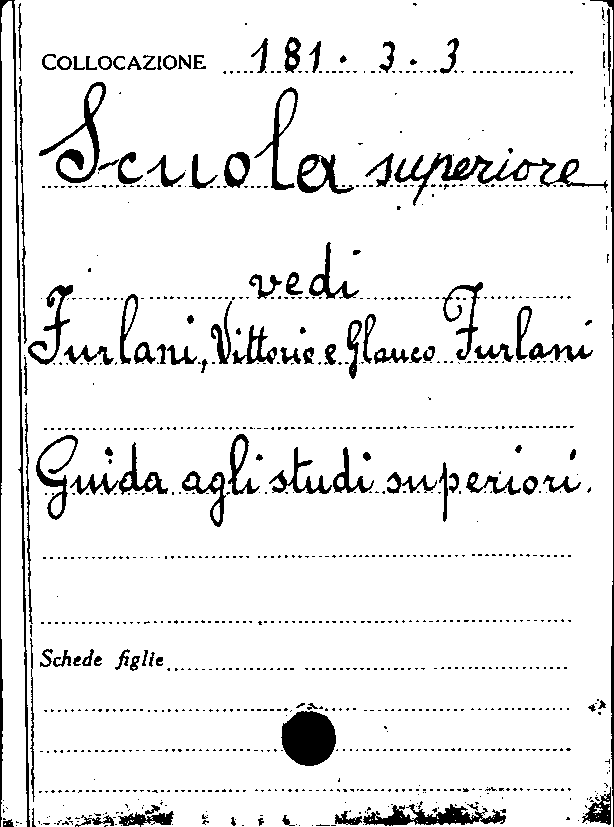 COLLOCAZIONE 181. 3. 3
Scuola superiore
vedi
Furlani, Vittorio e Glauco Furlani
Guida agli studi superiori.
Schede figlie